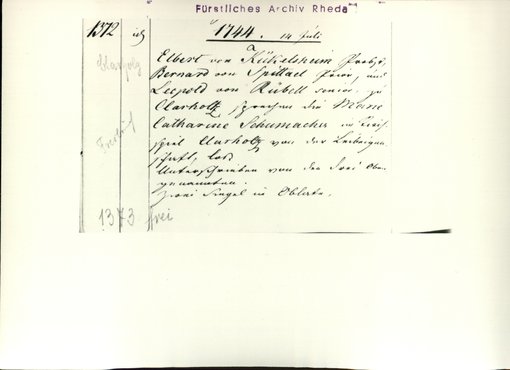 Fürstliches Archiv Rheda
1372
1744. 14 Juli
Elbert von Kükelsheim Probst,
Bernard von Spittael Prior, und
Leopold von Rübell senior zu
Clarholtz sprechen die Marie
Catharine Schumacher im Kirch-
spiel Clarholtz von der Leibeigen-
schaft, los.
Unterschrieben von den drei Obengenannten.
zwei Siegel in Oblate.
Clarholz
Freibrief
1373 frei